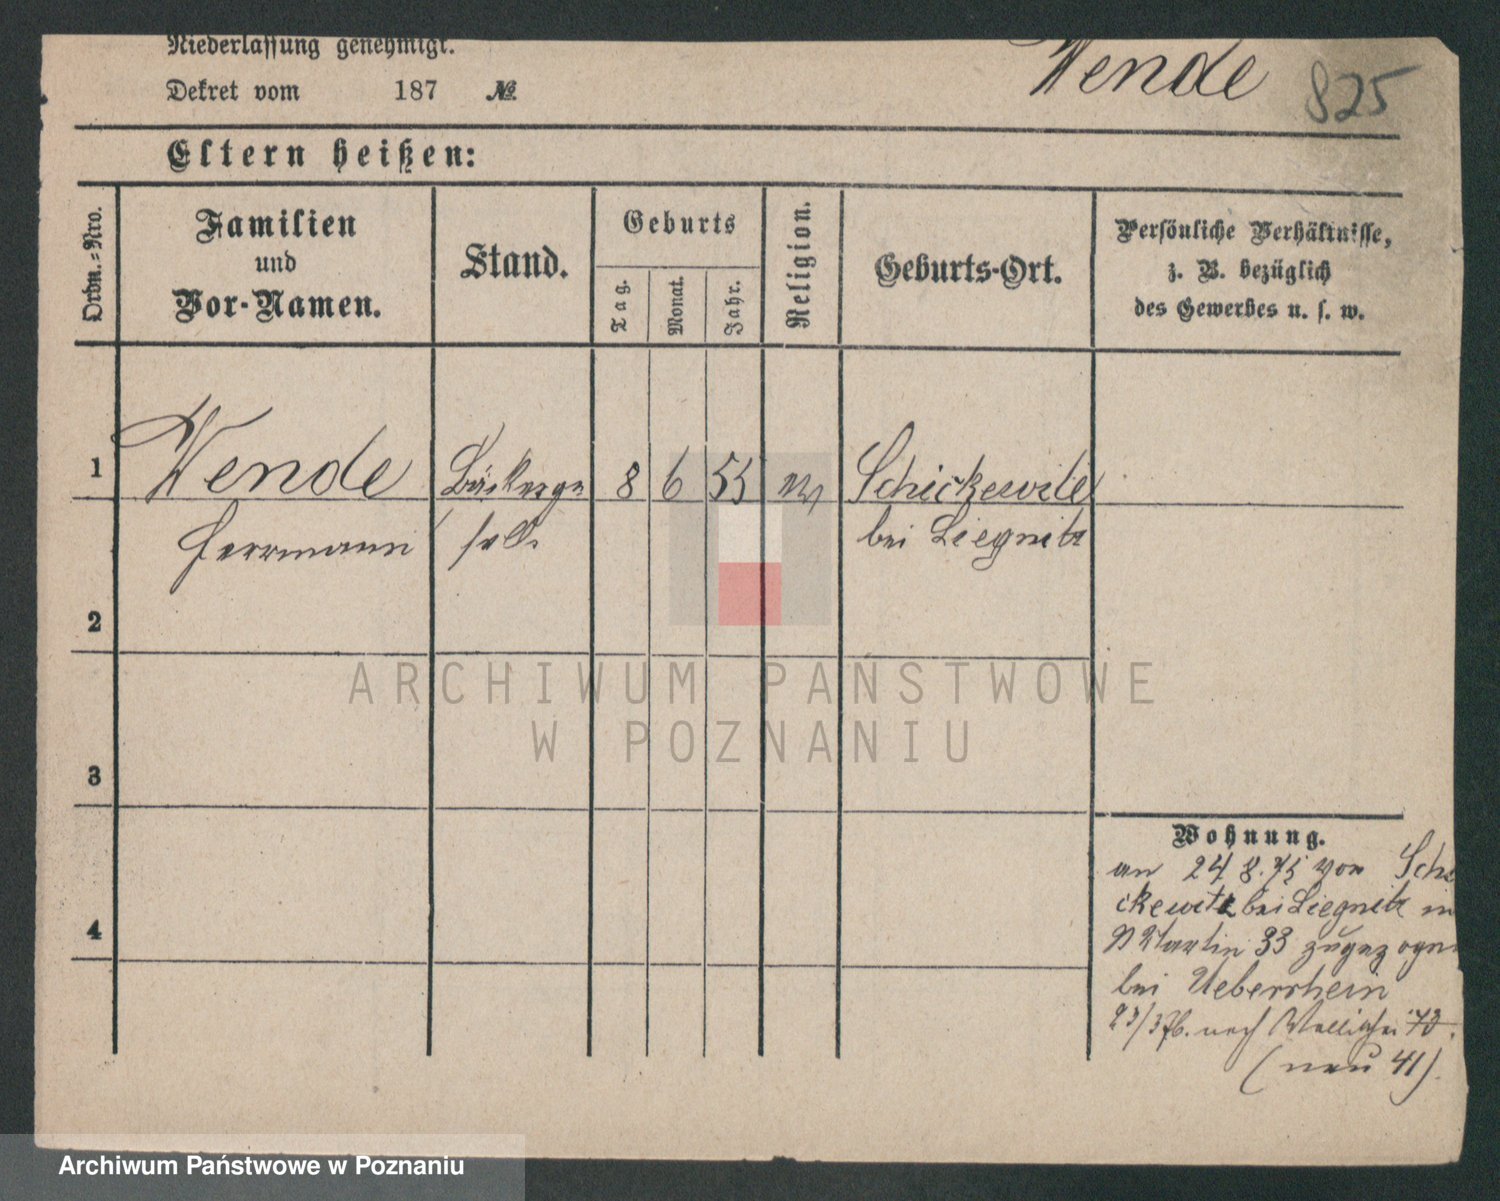 Niederlassung genehmigt.
Dekret vom 187 №
Wende 825
Eltern heißen:
Ordn.-Nro.
Familien
und
Vor-Namen.
Stand.
Geburts
Tag.
Monat.
Jahr.
Religion.
Geburts-Ort.
Persönliche Verhältnisse,
z. B. bezüglich
des Gewerbes u. s. w.
1 Wende Bäckerge 8 6 55 Schickewitz
Herrmann sell. bei Liegnitz
2
3
4
Wohnung.
an 24 8. 75 von Schi
ckewitz bei Liegnitz in
St Martin 33 zugezogen
bei Ueberrhein
23/3 76. nach Wallischei 73.
(neu 41).
ARCHIWUM PAŃSTWOWE
W POZNANIU
Archiwum Państwowe w Poznaniu